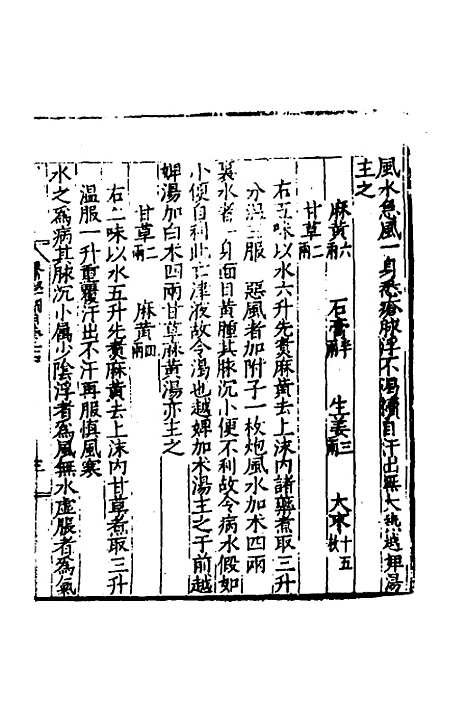 風水惡風一身悉瘇脉浮不渴續自汗出無大熱越婢湯
主之
麻黄六兩 石膏半 生姜三兩 大枣十五枚
甘草二兩
右五味以水六升先煑麻黄去上沫内諸藥煮取三升
分温三服 惡風者加附子一枚炮風水加术四兩
裏水者一身面目黄腫其脉沉小便不利故令病水假如
小便自利此亡津液故令渴也越婢加术湯主之于前越
婢湯加白术四兩甘草麻黄湯亦主之
甘草二兩 麻黄四兩
右二味以水五升先煑麻黄去上沫内甘草煮取三升
温服一升重覆汗出不汗再服慎風寒
水之為病其脉沉小属少陰浮者為風無水虚脹者為氣